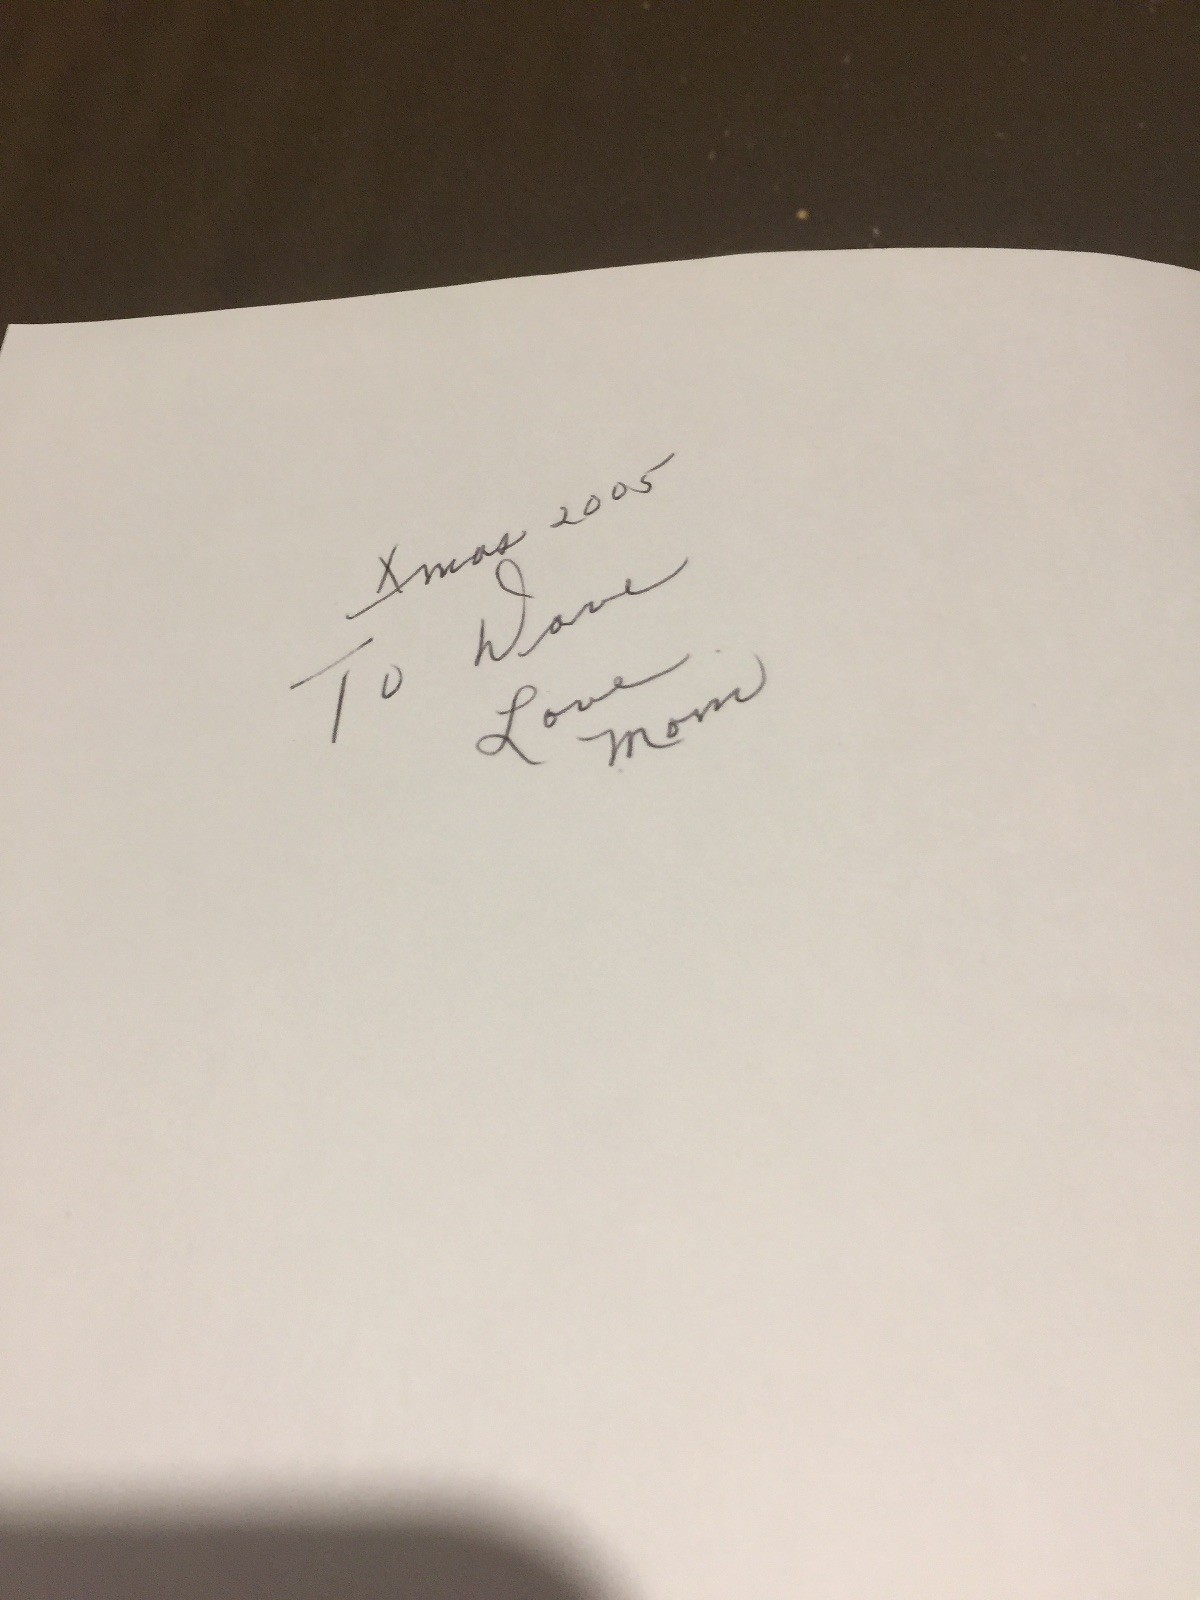 Xmas 2005
To Dave
Love
Mom